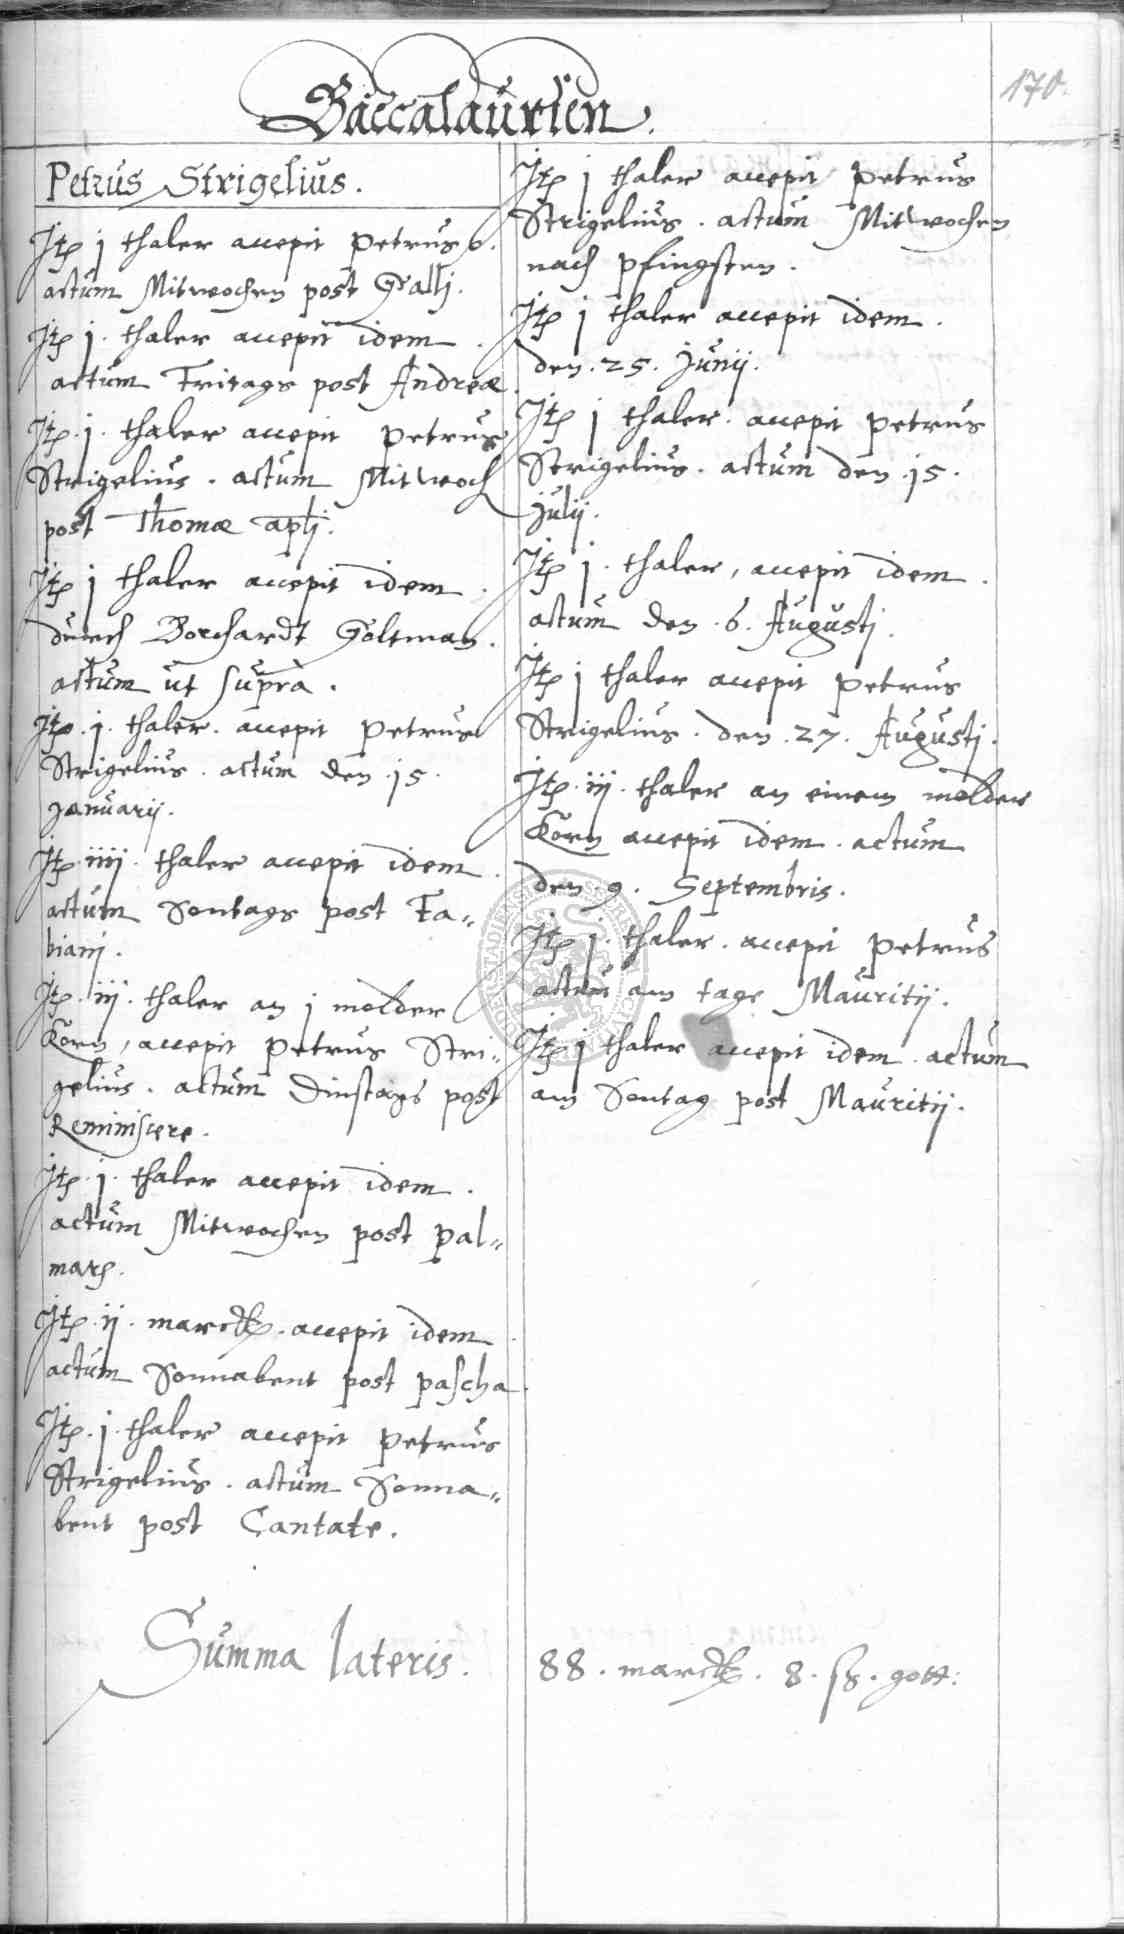 170.
Baccalaurien.
Petrus Strigelius.
Itē j thaler accepit Petrus S.
actum Mitwochen post Galli.
Itē j. thaler accepit idem.
actum Fritags post Andreæ.
Itē. j. thaler accepit Petrus
Strigelius. actum Mitwoch
post Thomæ apli.
Itē j thaler accepit idem.
durch Borchardt Goltman.
actum ut supra.
Itē. j. thaler. accepit Petrus
Strigelius. actum den .15.
Januarij.
Itē iiij. thaler accepit idem.
actum Sontags post Fa„
biani.
Itē. iij. thaler an j molder
Korn, accepit Petrus Stri„
gelius. actum Dinstags post
Reminiscere.
Itē. j. thaler accepit idem.
actum Mitwochen post Pal„
marū.
Itē. ij. marck. accepit idem
actum Sonnabent post pascha.
Itē. j. thaler accepit Petrus
Strigelius. actum Sonna„
bent post Cantate.
Itē j thaler accepit Petrus
Strigelius. actum Mitwochen
nach Pfingsten.
Itē j thaler accepit idem.
den. 25. Junij.
Itē j thaler. accepit Petrus
Strigelius. actum den .15.
Julij.
Itē j. thaler, accepit idem.
actum den .6. Augusti.
Itē j thaler accepit Petrus
Strigelius. den .27. Augusti.
Itē. iij. thaler an einem molder
Korn accepit idem. actum
den .9. Septembris.
Itē j. thaler. accepit Petrus
actum am tage Mauritij.
Itē j thaler accepit idem. actum
am Sontag post Mauritij.
Summa lateris. 88. marck. 8. ß. gott: